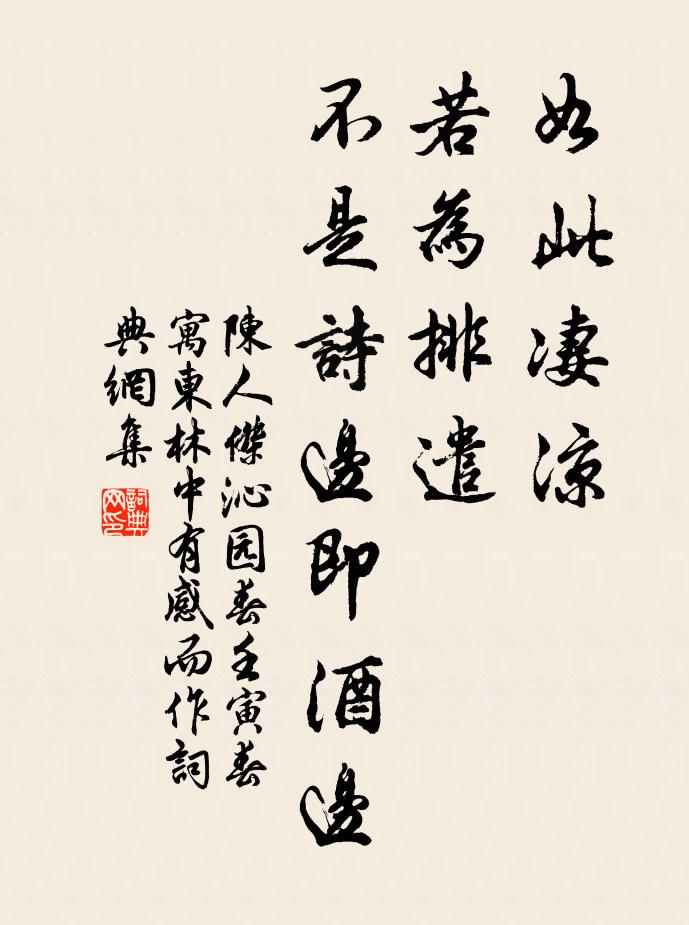 如此凄涼
若為排遣
不是詩邊即酒邊
陳人傑沁园春壬寅春
寓東林中有感而作詞
典網集
詞典网印